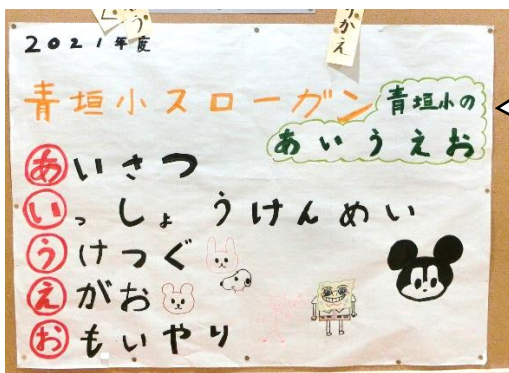 2021年度
青垣小スローガン
青垣小の
あいうえお
あいさつ
いっしょうけんめい
うけつぐ
えがお
おもいやり